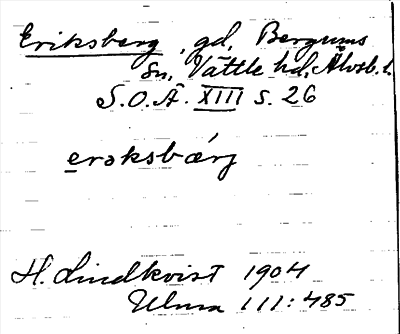 Eriksberg, gd, Bergums
sn, Vättle hd, Älvsb. l.
S.O.Ä. XIII s. 26
erəksbærj
H. Lindkvist 1904
Ulma 111:485